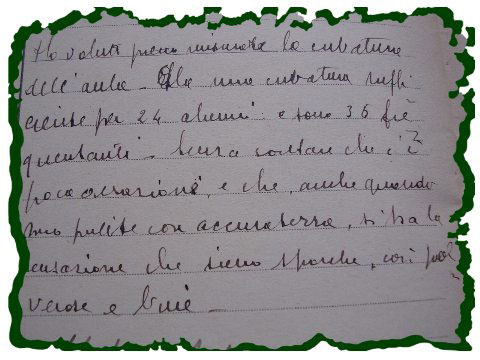 Ho voluto misurare la cubatura
dell'aula. Ha una cubatura suffi
ciente per 24 alunni e sono 36 fre
quentanti. Senza contare che c'è
poca areazione, e che, anche quando
sono pulite con accuratezza, si ha la
sensazione che siano sporche, così pol
verose e buie